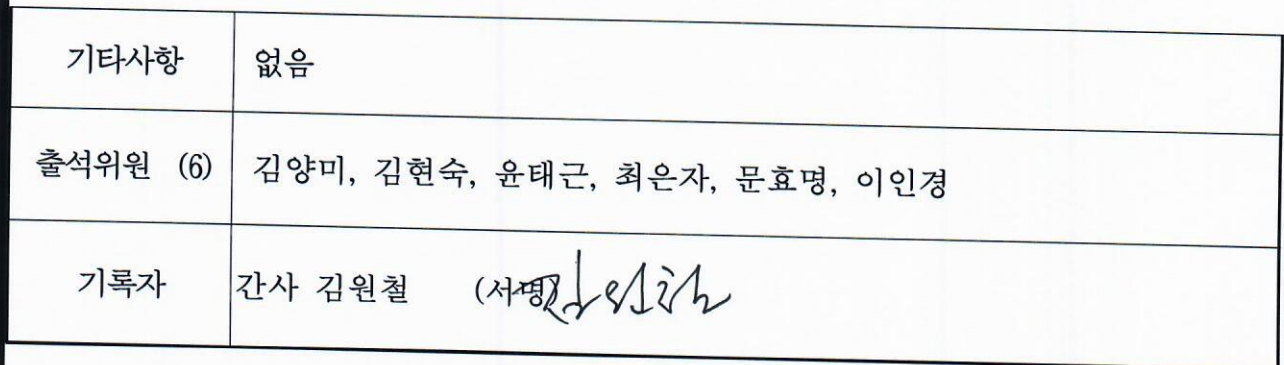 기타사항 없음
출석위원 (6) 김양미, 김현숙, 윤태근, 최은자, 문효명, 이인경
기록자 간사 김원철 (서명) 김원철